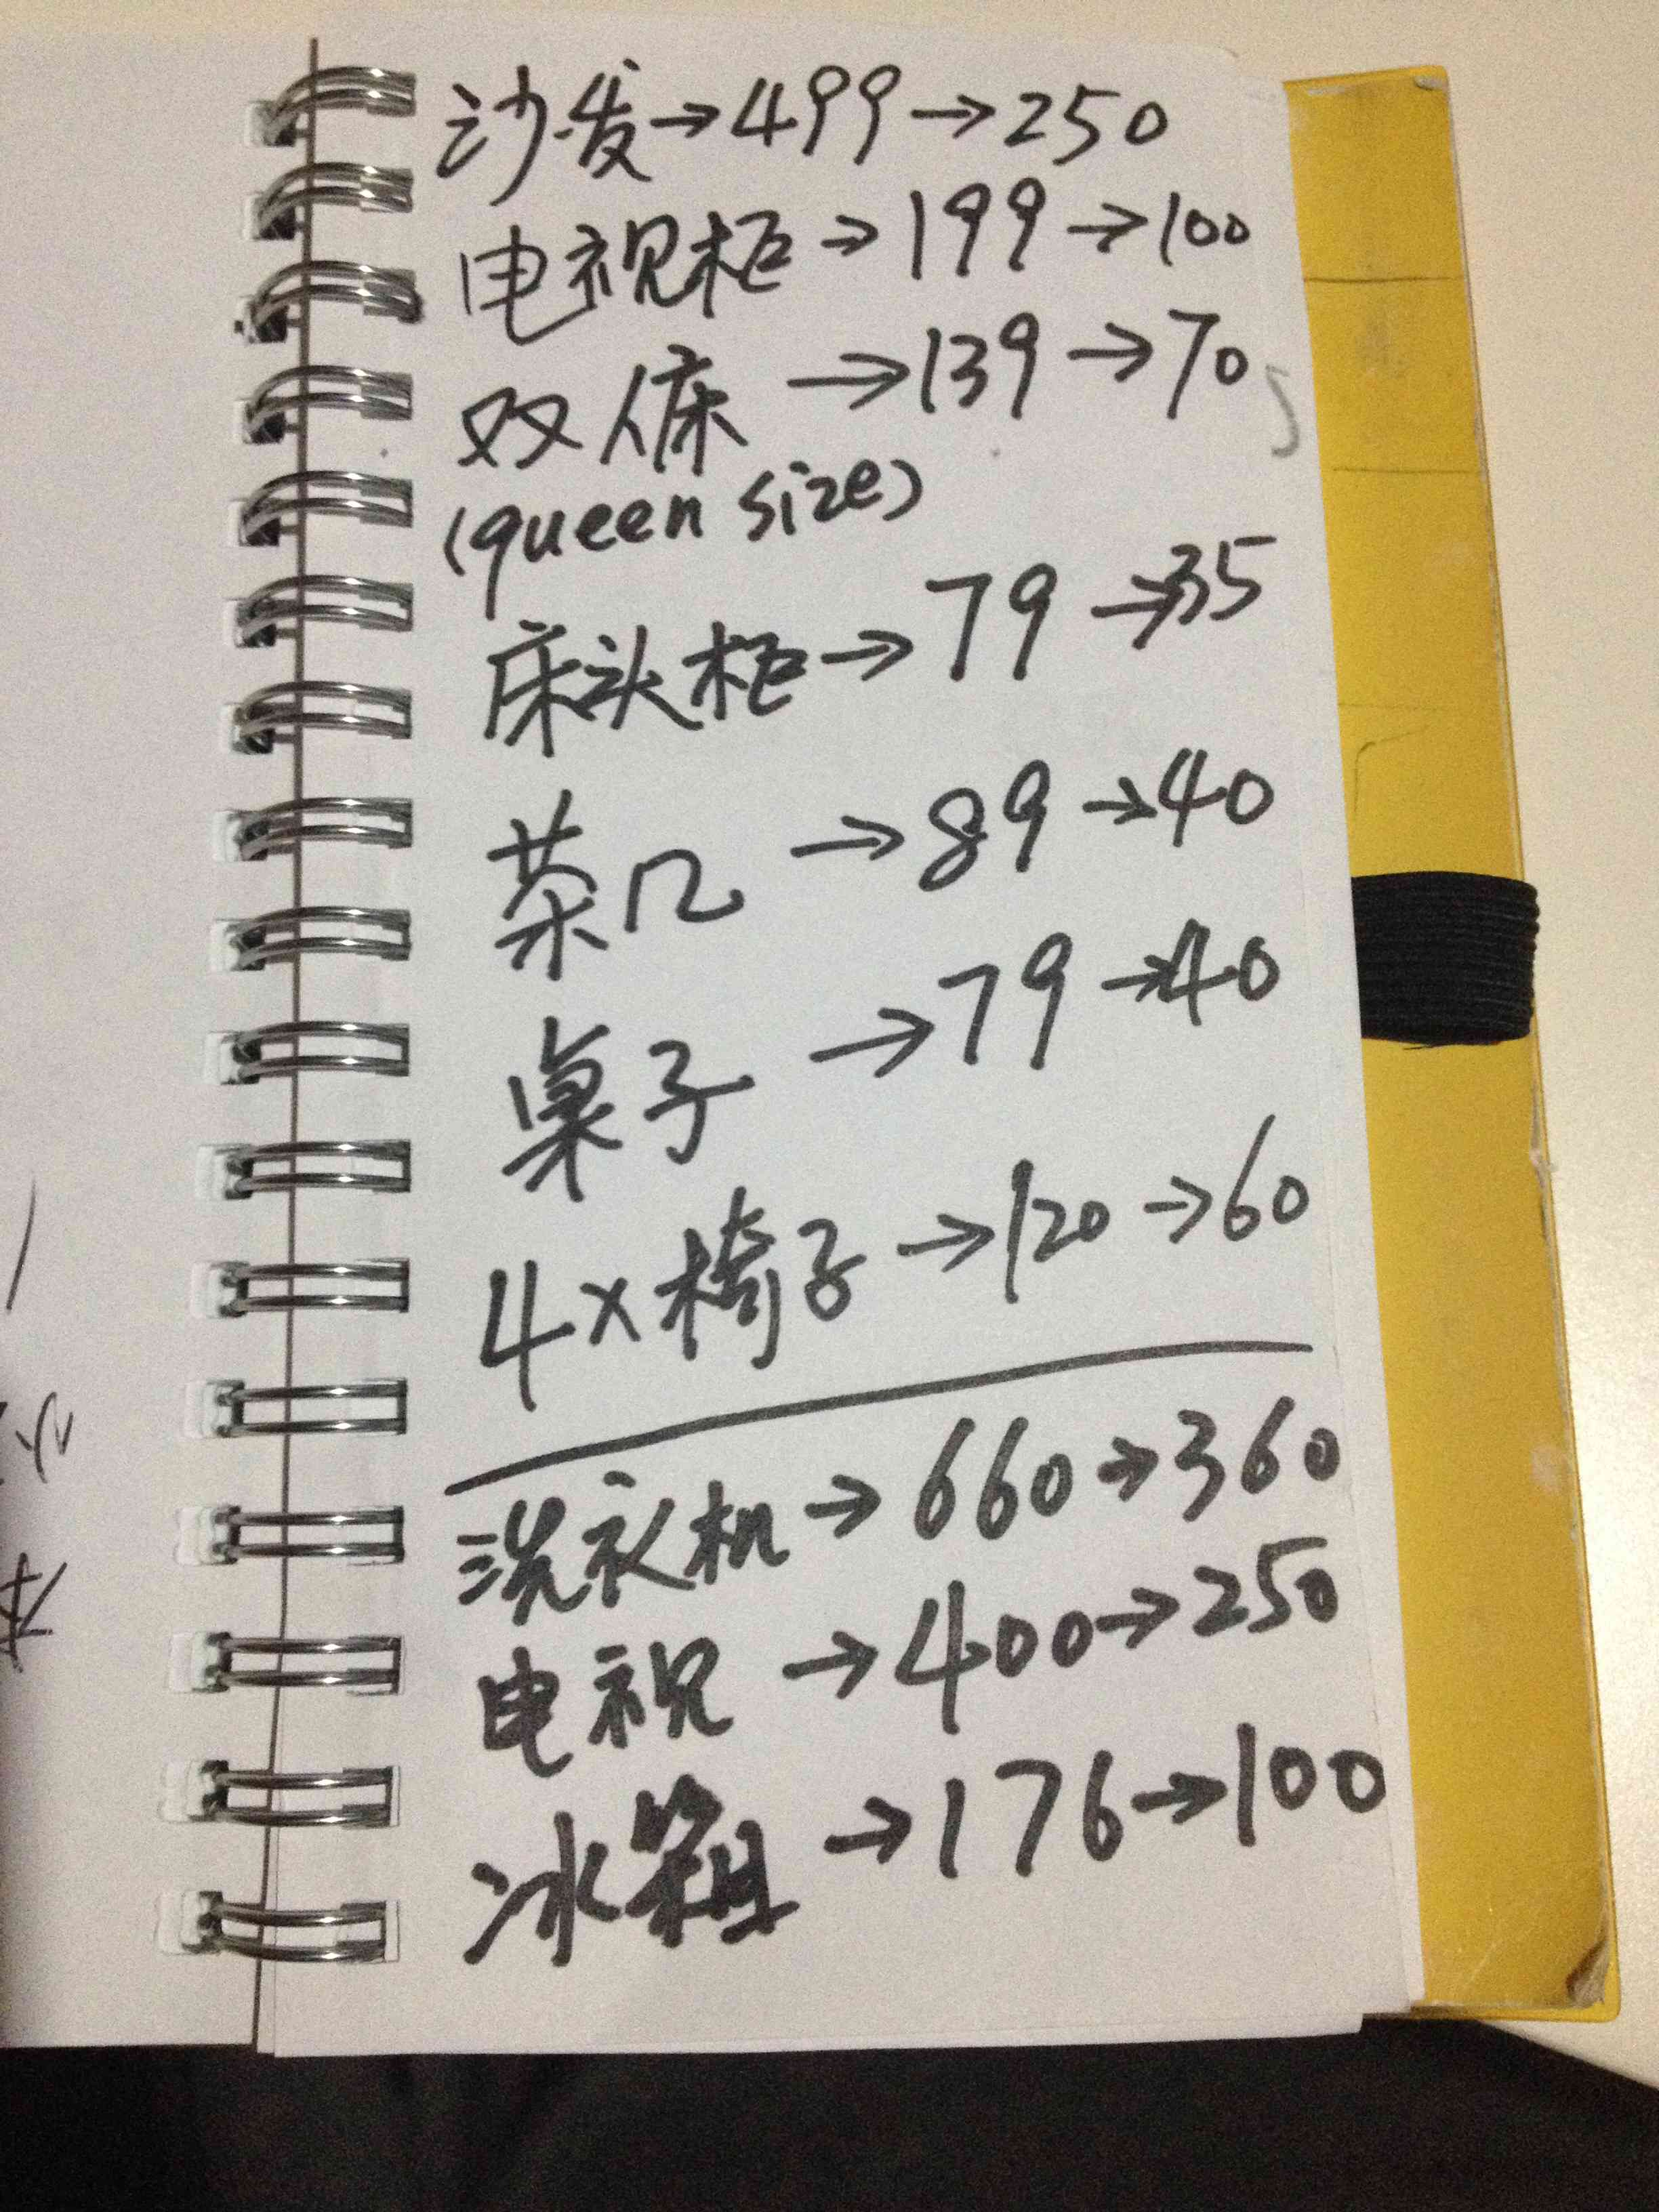 沙发→499→250
电视柜→199→100
双人床→139→70
(queen size)
床头柜→79→35
茶几→89→40
桌子→79→40
4×椅子→120→60
洗衣机→660→360
电视→400→250
冰箱→176→100